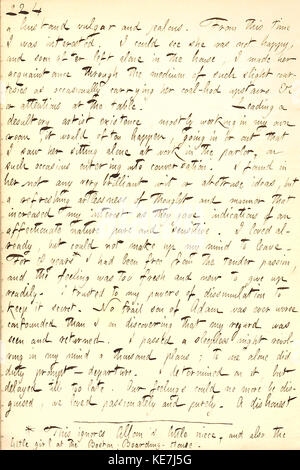 224
husband vulgar and jealous. From this time
I was interested. I could see she was not happy,
and soon after left alone in the house, I made her
acquaintance through the medium of such slight cour-
tesies as occasionally carrying her coal-hod upstairs. Or
a attentions at the table. Leading a
desultory artist existence mostly working in my own
room, it would often happen, going in or out that
I saw her sitting alone at work in the parlor, on
such occasions entering into conversation. I found in
her not any very brilliant wit or abstruse ideas, but
a refreshing artlessness of thought and manner that
increased my interest as they gave indications of an
affectionate nature pure and sensitive. I loved al-
ready but could not make up my mind to leave.
For years I had been free from the tender passion
and the feeling was too fresh and new to give up
readily. I trusted to my powers of dissimulation to
keep it secret. No frail son of Adam was ever more
confounded than I on discovering that my regard was
seen and returned. I passed a sleepless night revol-
ving in my mind a thousand plans; to me alone did
duty prompt departure. I determined on it but
delayed till too late. Our feelings could no more be dis-
guised, we loved passionately and purely. A dishonest
* This ignores Allom's little niece, and also the
little girl at the Boston Boarding-House.
alamy